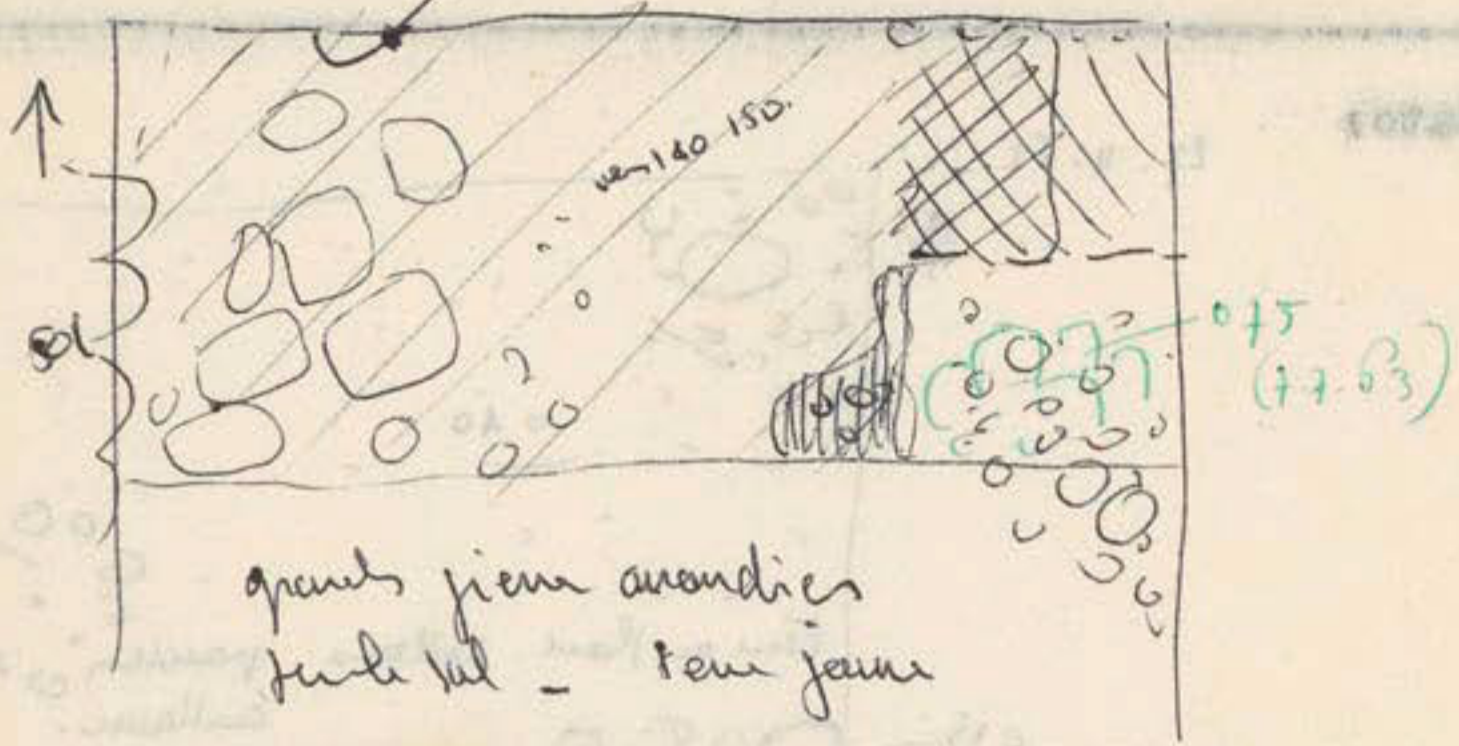 vers 140 150.
sol
075
(77.03)
grands pierres arrondies
sur le sol - terre jaune